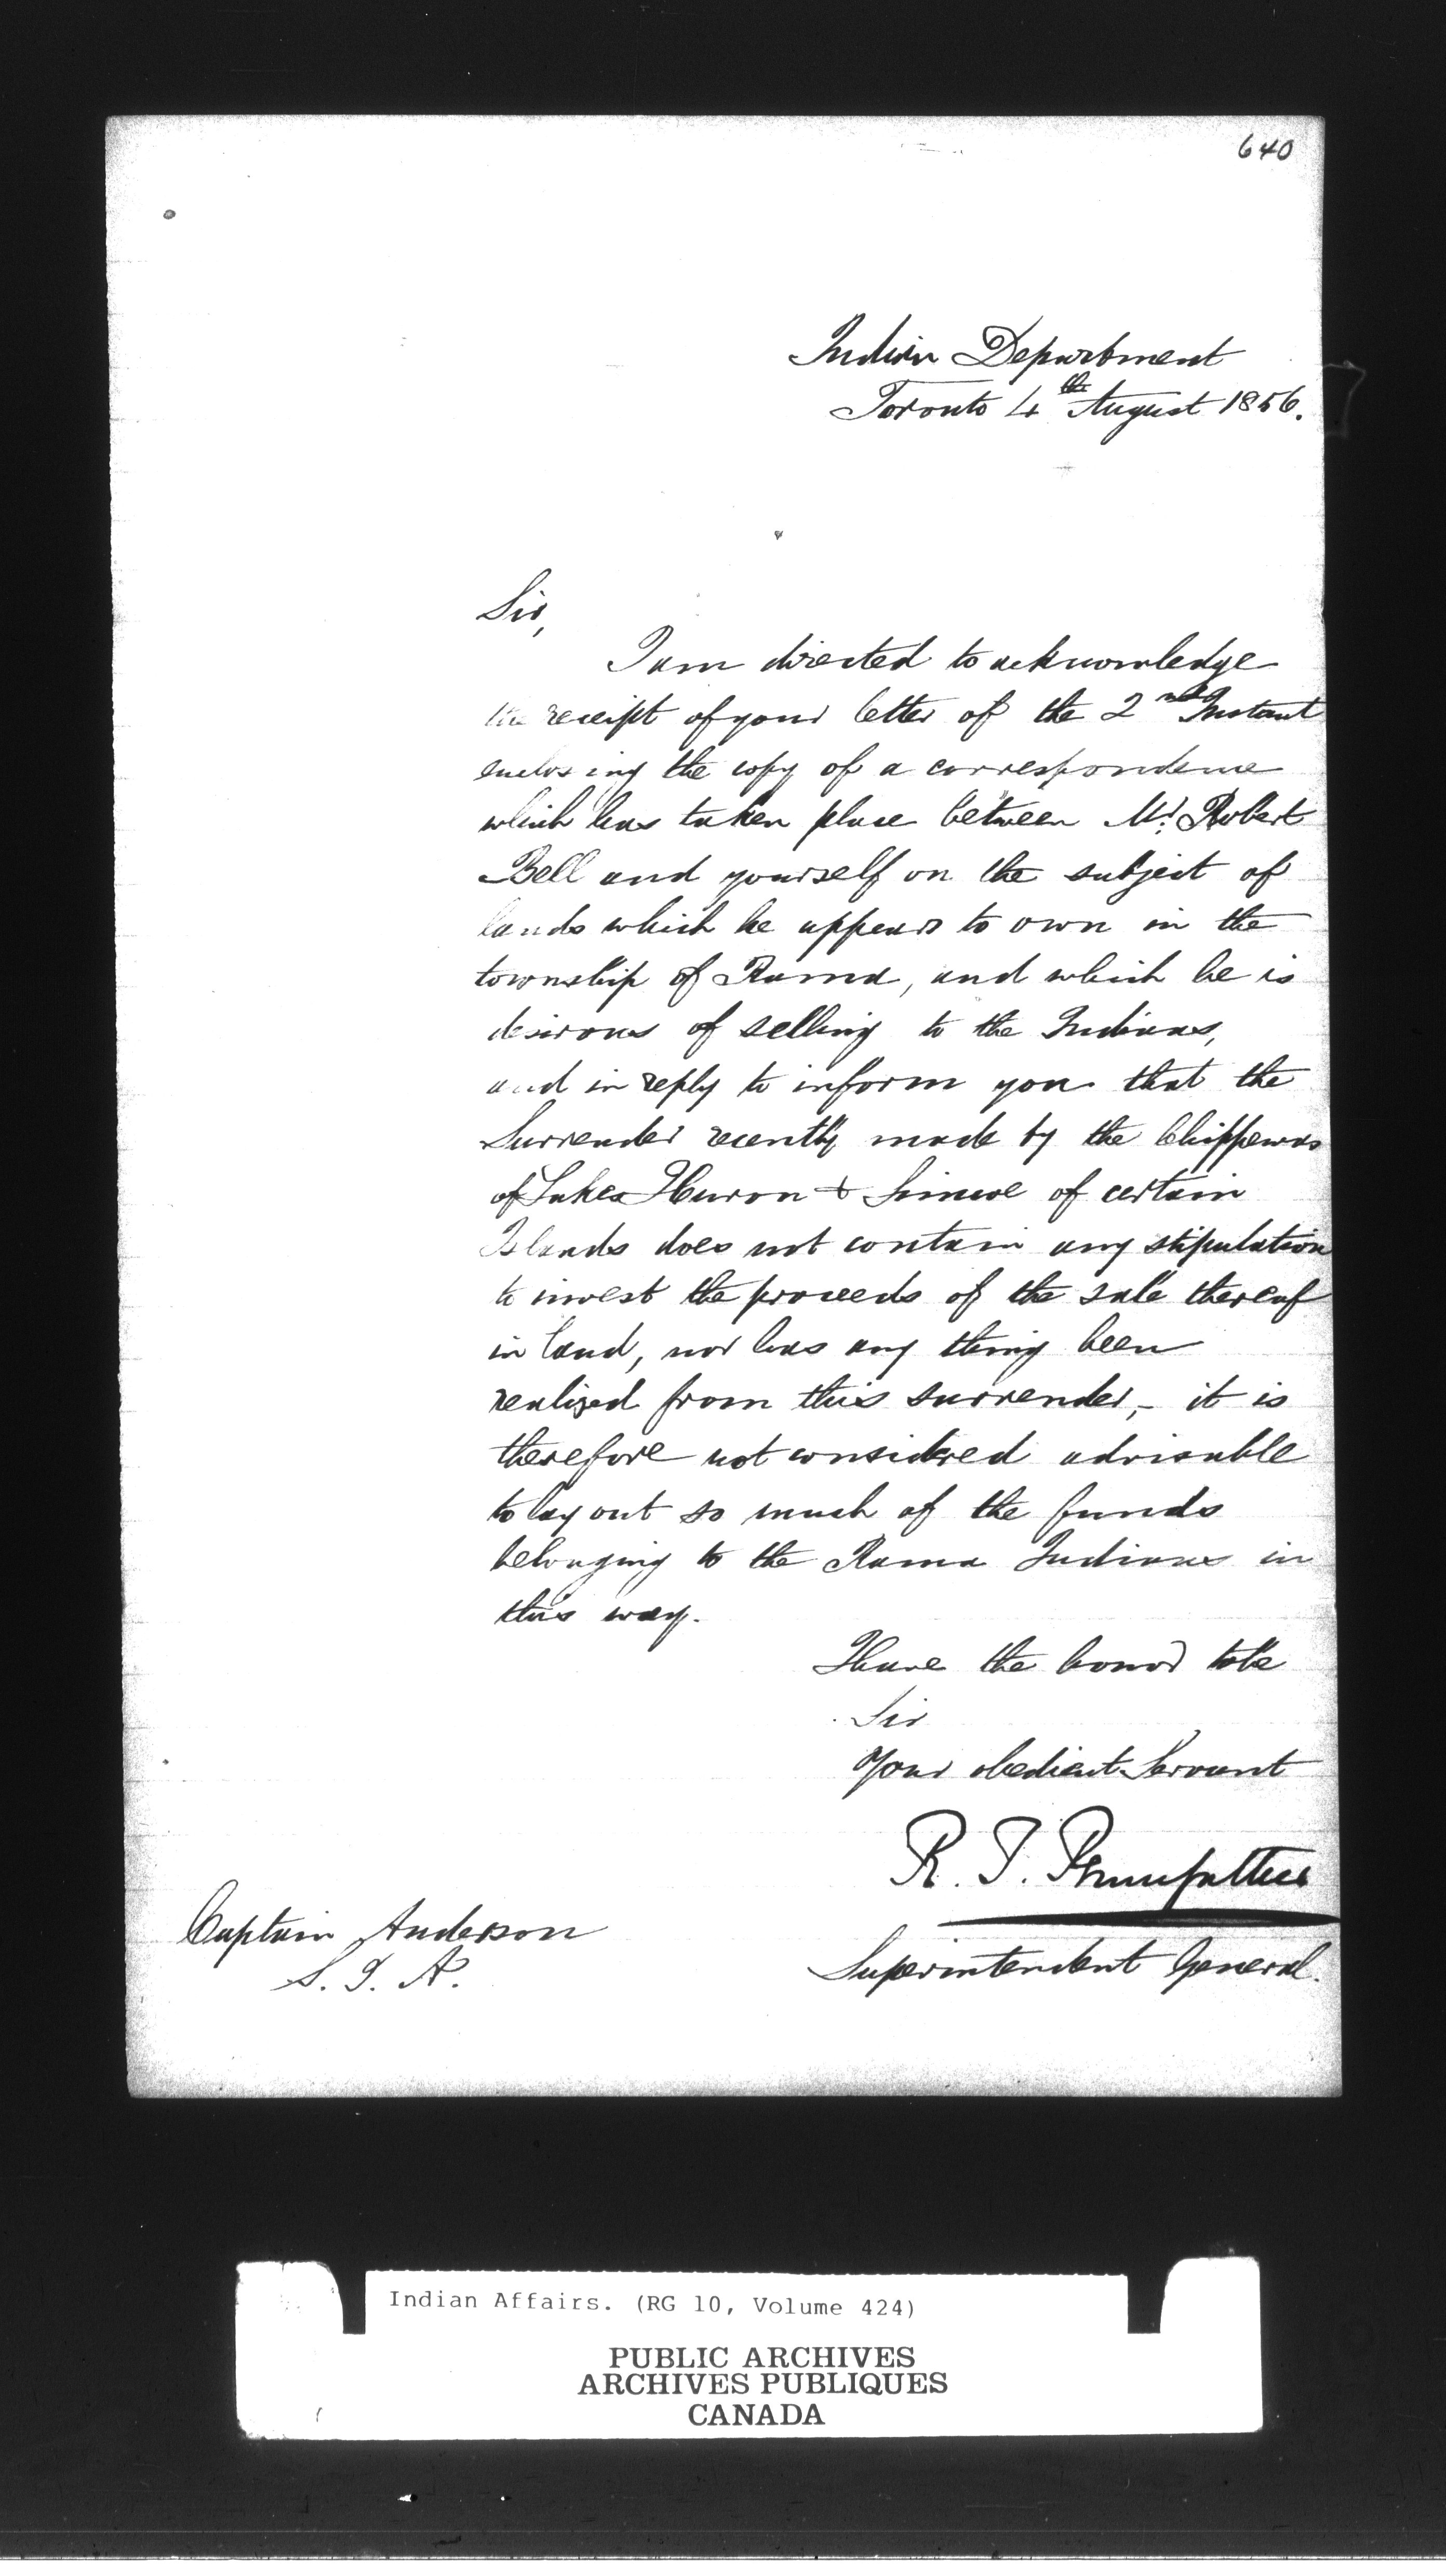 640
Indian Department
Toronto 4th August 1856.
Sir,
I am directed to acknowledge
the receipt of your letter of the 2nd Instant
enclosing the copy of a correspondence
which has taken place between Mr. Robert
Bell and yourself on the subject of
lands which he appears to own in the
township of Rama, and which he is
desirous of selling to the Indians,
and in reply to inform you that the
Surrender recently made by the Chippewas
of Lakes Huron & Simcoe of certain
Islands does not contain any stipulation
to invest the proceeds of the sale thereof
in land, nor has any thing been
realized from this surrender, - it is
therefore not considered advisable
to lay out so much of the funds
belonging to the Rama Indians in
this way.
I have the honor to be
Sir
Your obedient Servant
R. T. Pennefather
Superintendent General.
Captain Anderson
S. I. A.
Indian Affairs. (RG 10, Volume 424)
PUBLIC ARCHIVES
ARCHIVES PUBLIQUES
CANADA